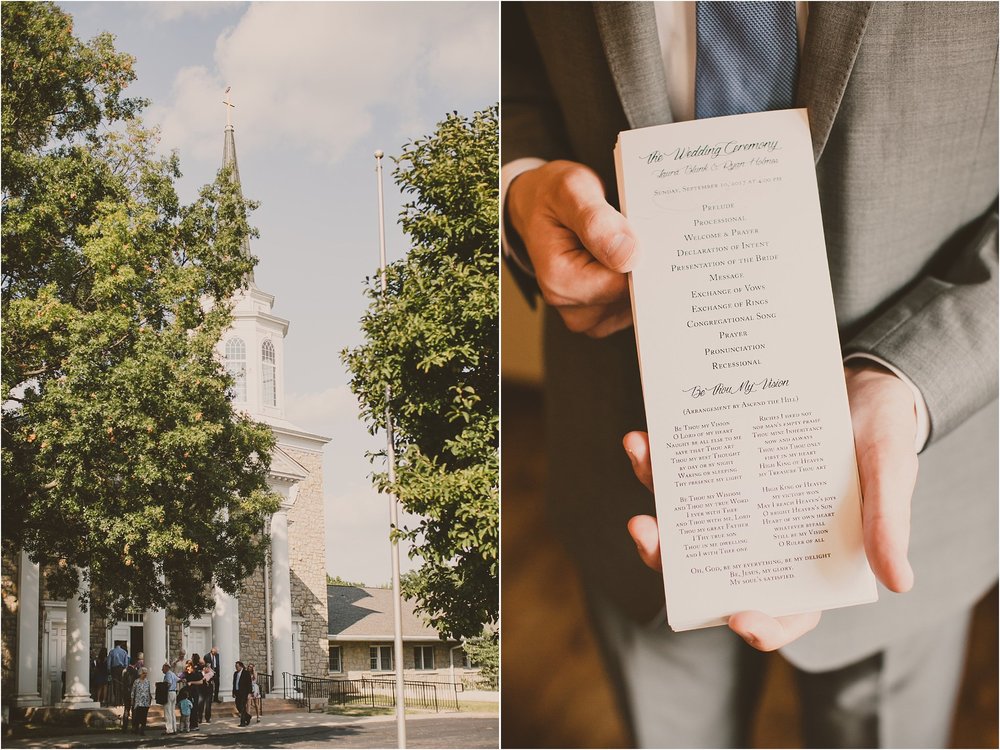 The Wedding Ceremony
Laura Blank & Ryan Holmes
Sunday, September 10, 2017 at 4:00 pm
Prelude
Processional
Welcome & Prayer
Declaration of Intent
Presentation of the Bride
Message
Exchange of Vows
Exchange of Rings
Congregational Song
Prayer
Pronunciation
Recessional
Be Thou My Vision
(Arrangement by Ascend the Hill)
Be Thou my Vision
O Lord of my heart
Naught be all else to me
save that Thou art
Thou my best Thought
by day or by night
Waking or sleeping
Thy presence my light
Be Thou my Wisdom
and Thou my true Word
I ever with Thee
and Thou with me, Lord
Thou my great Father
I Thy true son
Thou in me dwelling
and I with Thee one
Riches I heed not
nor man's empty praise
Thou mine Inheritance
now and always
Thou and Thou only
first in my heart
High King of Heaven
my Treasure Thou art
High King of Heaven
my victory won
May I reach Heaven's joys
O bright Heaven's Sun
Heart of my own heart
whatever befall
Still be my Vision
O Ruler of all
Oh, God, be my everything, be my delight
Be, Jesus, my glory.
My soul's satisfied.